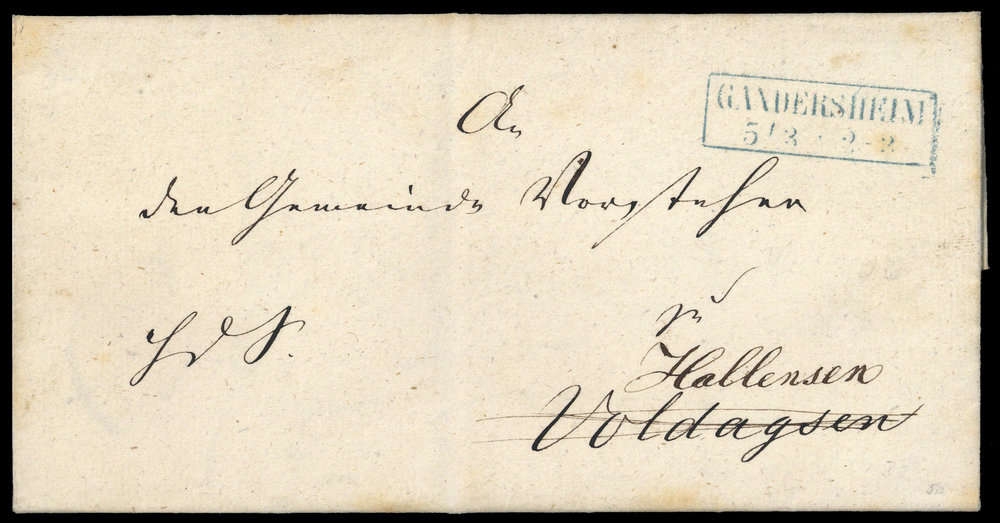 GANDERSHEIM
5/3 · 2-3
An
den Gemeinde Vorsteher
H d S.
zu
Hallensen
Voldagsen